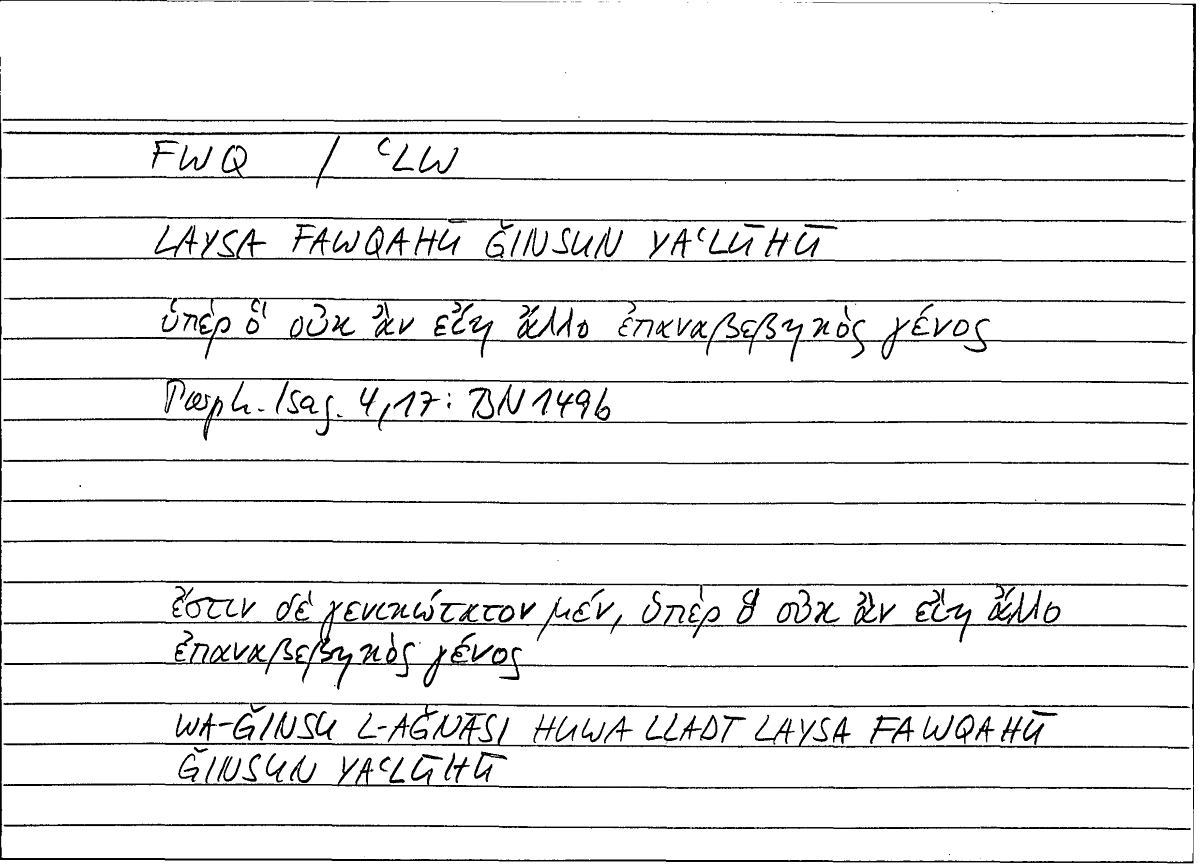 FWQ / ʿLW
LAYSA FAWQAHŪ ǦINSUN YAʿLŪHŪ
ὑπὲρ ὃ οὐκ ἂν εἴη ἄλλο ἐπαναβεβηκὸς γένος
Porph. Isag. 4,17: BN 149b
ἔστιν δὲ γενικώτατον μέν, ὑπὲρ ὃ οὐκ ἂν εἴη ἄλλο
ἐπαναβεβηκὸς γένος
WA-ǦINSU L-AǦNĀSI HUWA LLADI LAYSA FAWQAHŪ
ǦINSUN YAʿLŪHŪ